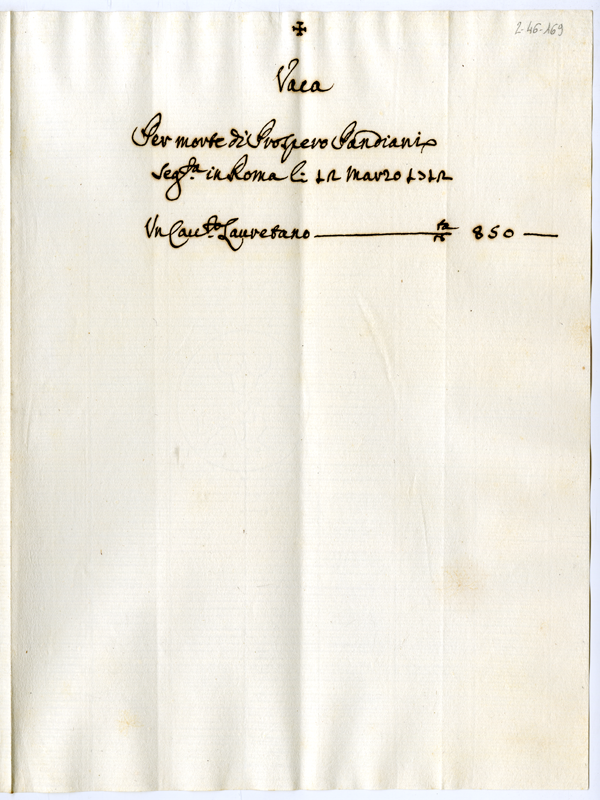 2-46-169
Vaca
Per morte di Prospero Pandiani
seg.ta in Roma li 12 Marzo
Un Cau.to Lauretano 850